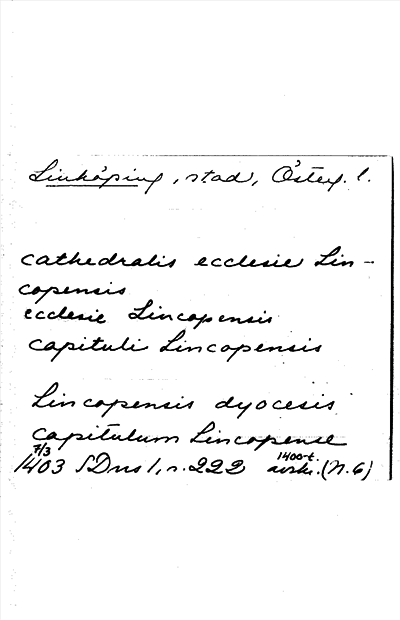 Linköping, stad, Österg. l.
cathedralis ecclesie Lin-
copensis
ecclesie Lincopensis
capituli Lincopensis
Lincopensis dyocesis
capitulum Lincopense
7/3 1400-t.
1403 SDns 1, s. 222 avskr. (N. 6)